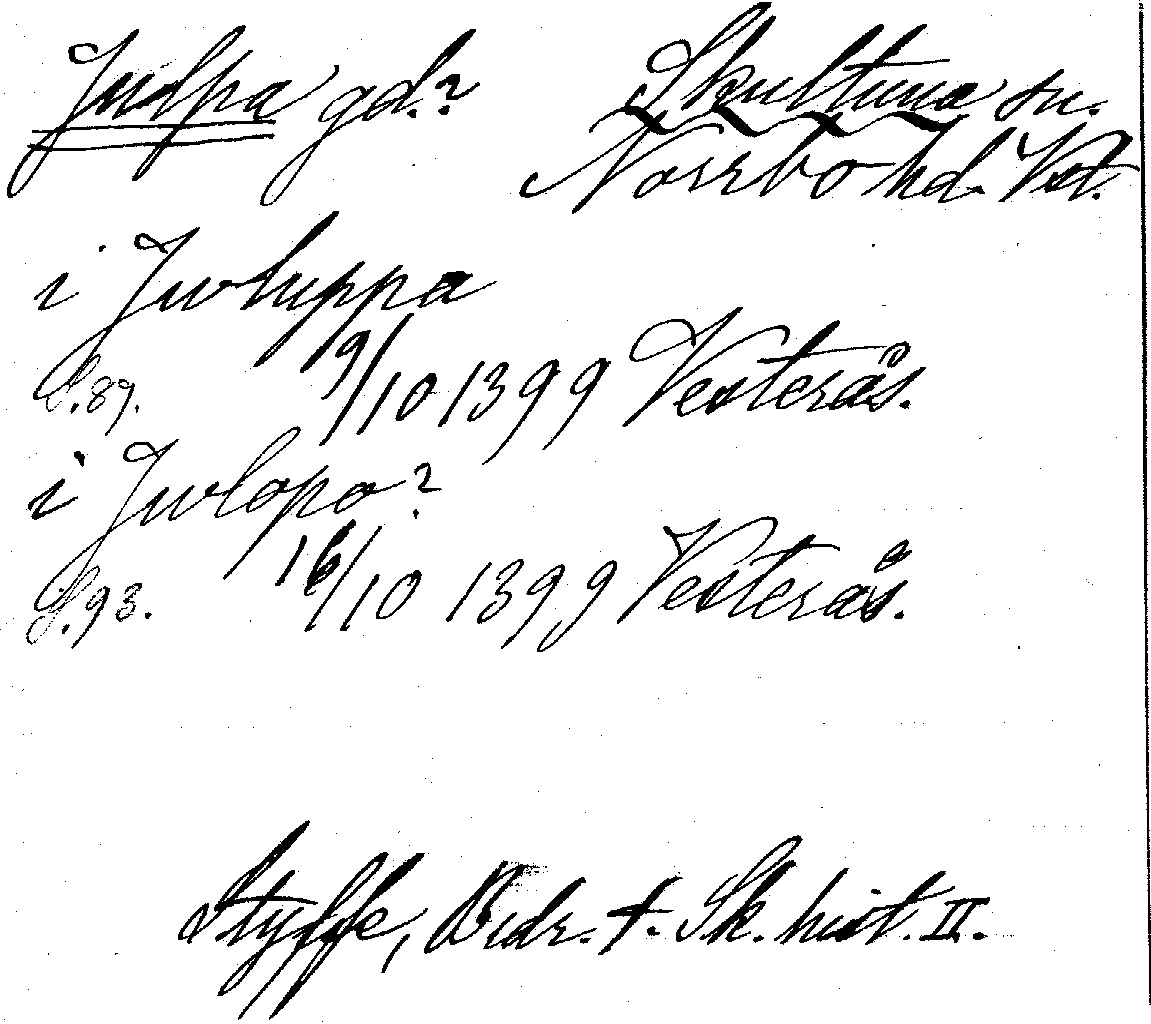 Julpa gd.? Skultuna sn.
Norrbo hd. Vst.
i Jwluppa
S. 87. 9/10 1399 Vesterås.
i Jwlopo?
S. 93. 16/10 1399 Vesterås.
Styffe, Bidr. t. Sk. hist. II.